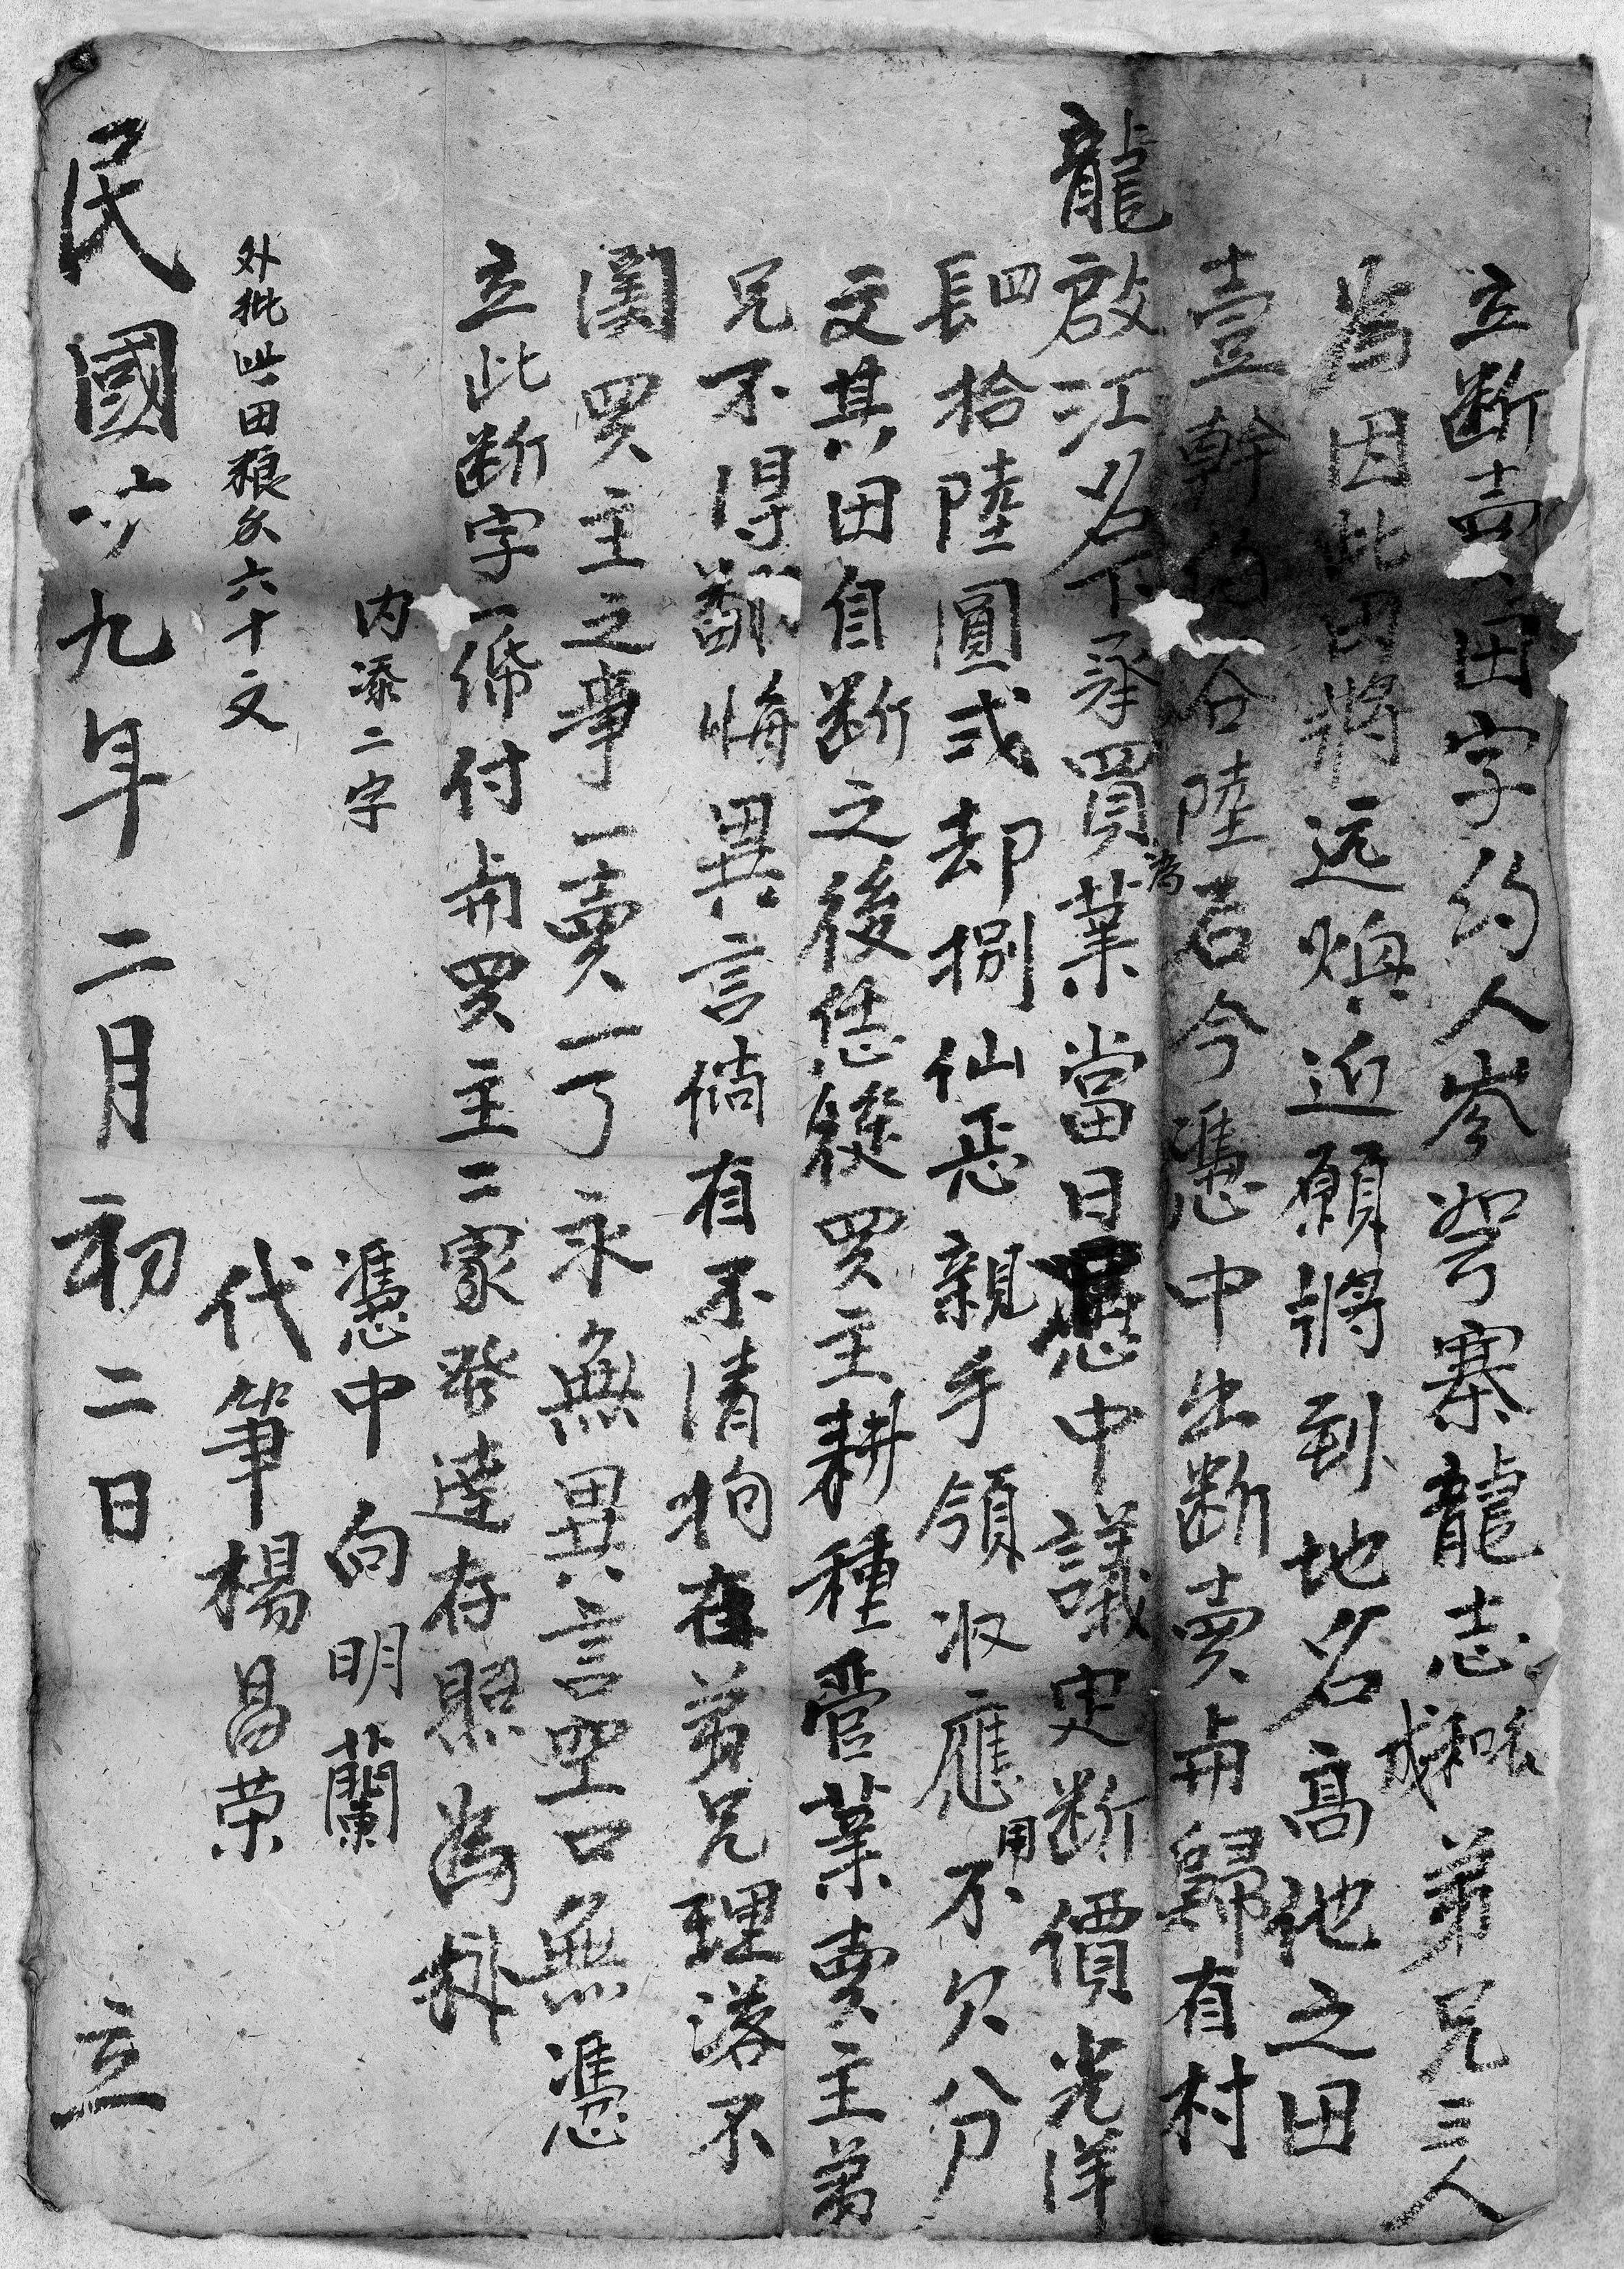 立断卖田字約人岑努寨龍志和成弟兄三人
為因此田將远煥近願將到地名高池之田
壹幹約谷陸石今憑中出断賣與歸有村
龍啟江名下承買為業當日憑中議定断價光洋
四拾陸圓弍却捌仙忎親手領收應用不欠分
文其田自断之後恁縱買主耕種管業賣主弟
兄不得翻悔異言倘有不清拘在弟兄理落不
関買主之事一賣一了永無異言空口無憑
立此断字一紙付與買主二家發達存照為據
内添二字
憑中 向明蘭
外批此田粮久六十文
代筆 楊昌荣
民國廿九年二月初二日 立